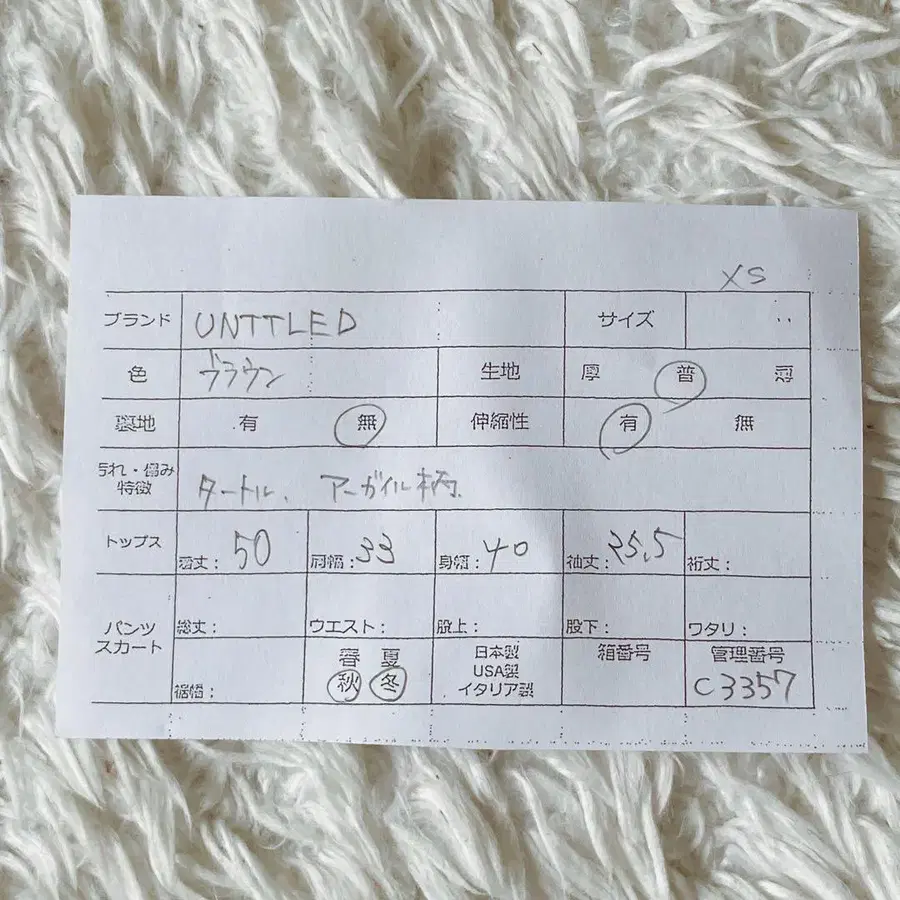 XS
ブランド UNTTLED サイズ
色 ブラウン 生地 厚 普 薄
裏地 有 無 伸縮性 有 無
汚れ・傷み
特徴 タートル、アーガイル柄、
トップス 着丈: 50 肩幅: 33 身幅: 40 袖丈: 25.5 裄丈:
パンツ
スカート
総丈: ウエスト: 股上: 股下: ワタリ:
裾幅:
春 夏
秋 冬
日本製
USA製
イタリア製
箱番号
管理番号
C3357